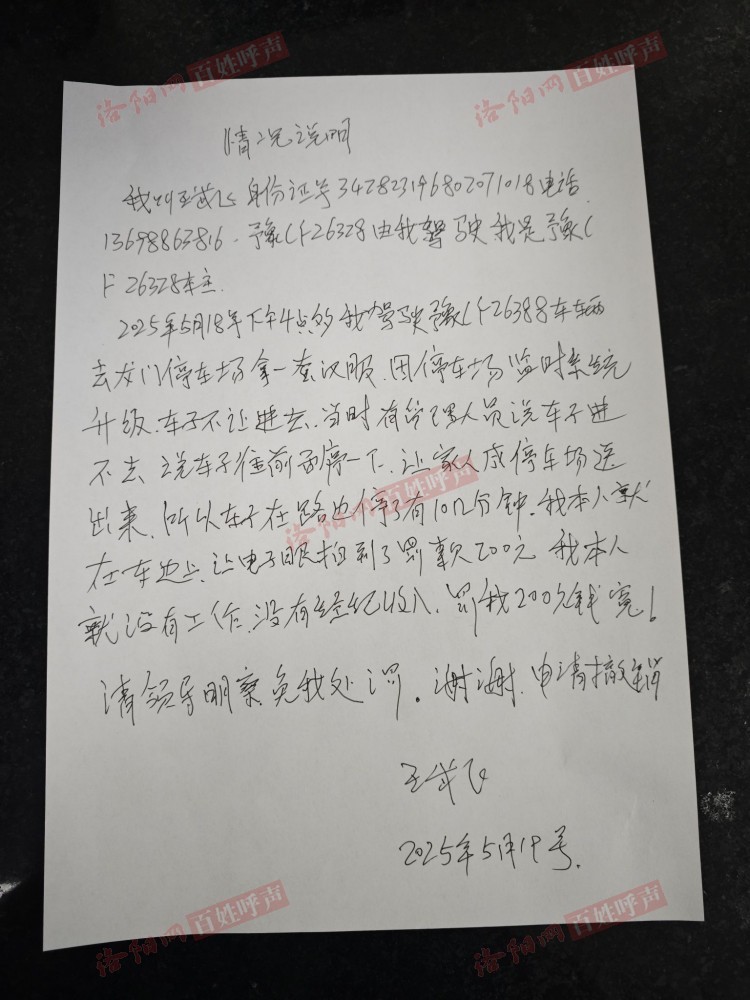 洛阳网 百姓呼声
洛阳网 百姓呼声
情况说明
我叫王武飞 身份证号342823196802071018电话
13698863816.豫CF26328由我驾驶我是豫C
F26328车主.
2025年5月18号下午4点多我驾驶豫CF26388车辆
去龙门停车场拿一套汉服.因停车场监时系统
升级.车子不让进去.当时有管理人员说车子进
不去 说车子往前面停一下.让家人从停车场送
出来.所以车子在路边停了有10几分钟.我本人就
洛阳网 百姓呼声
在车边上.让电子眼拍到了罚款200元 我本人
就没有工作.没有经纪收入.罚我200元钱冤!
请领导明察免我处罚.谢谢.申请撤销
王武飞
2025年5月19号.
洛阳网 百姓呼声
洛阳网 百姓呼声